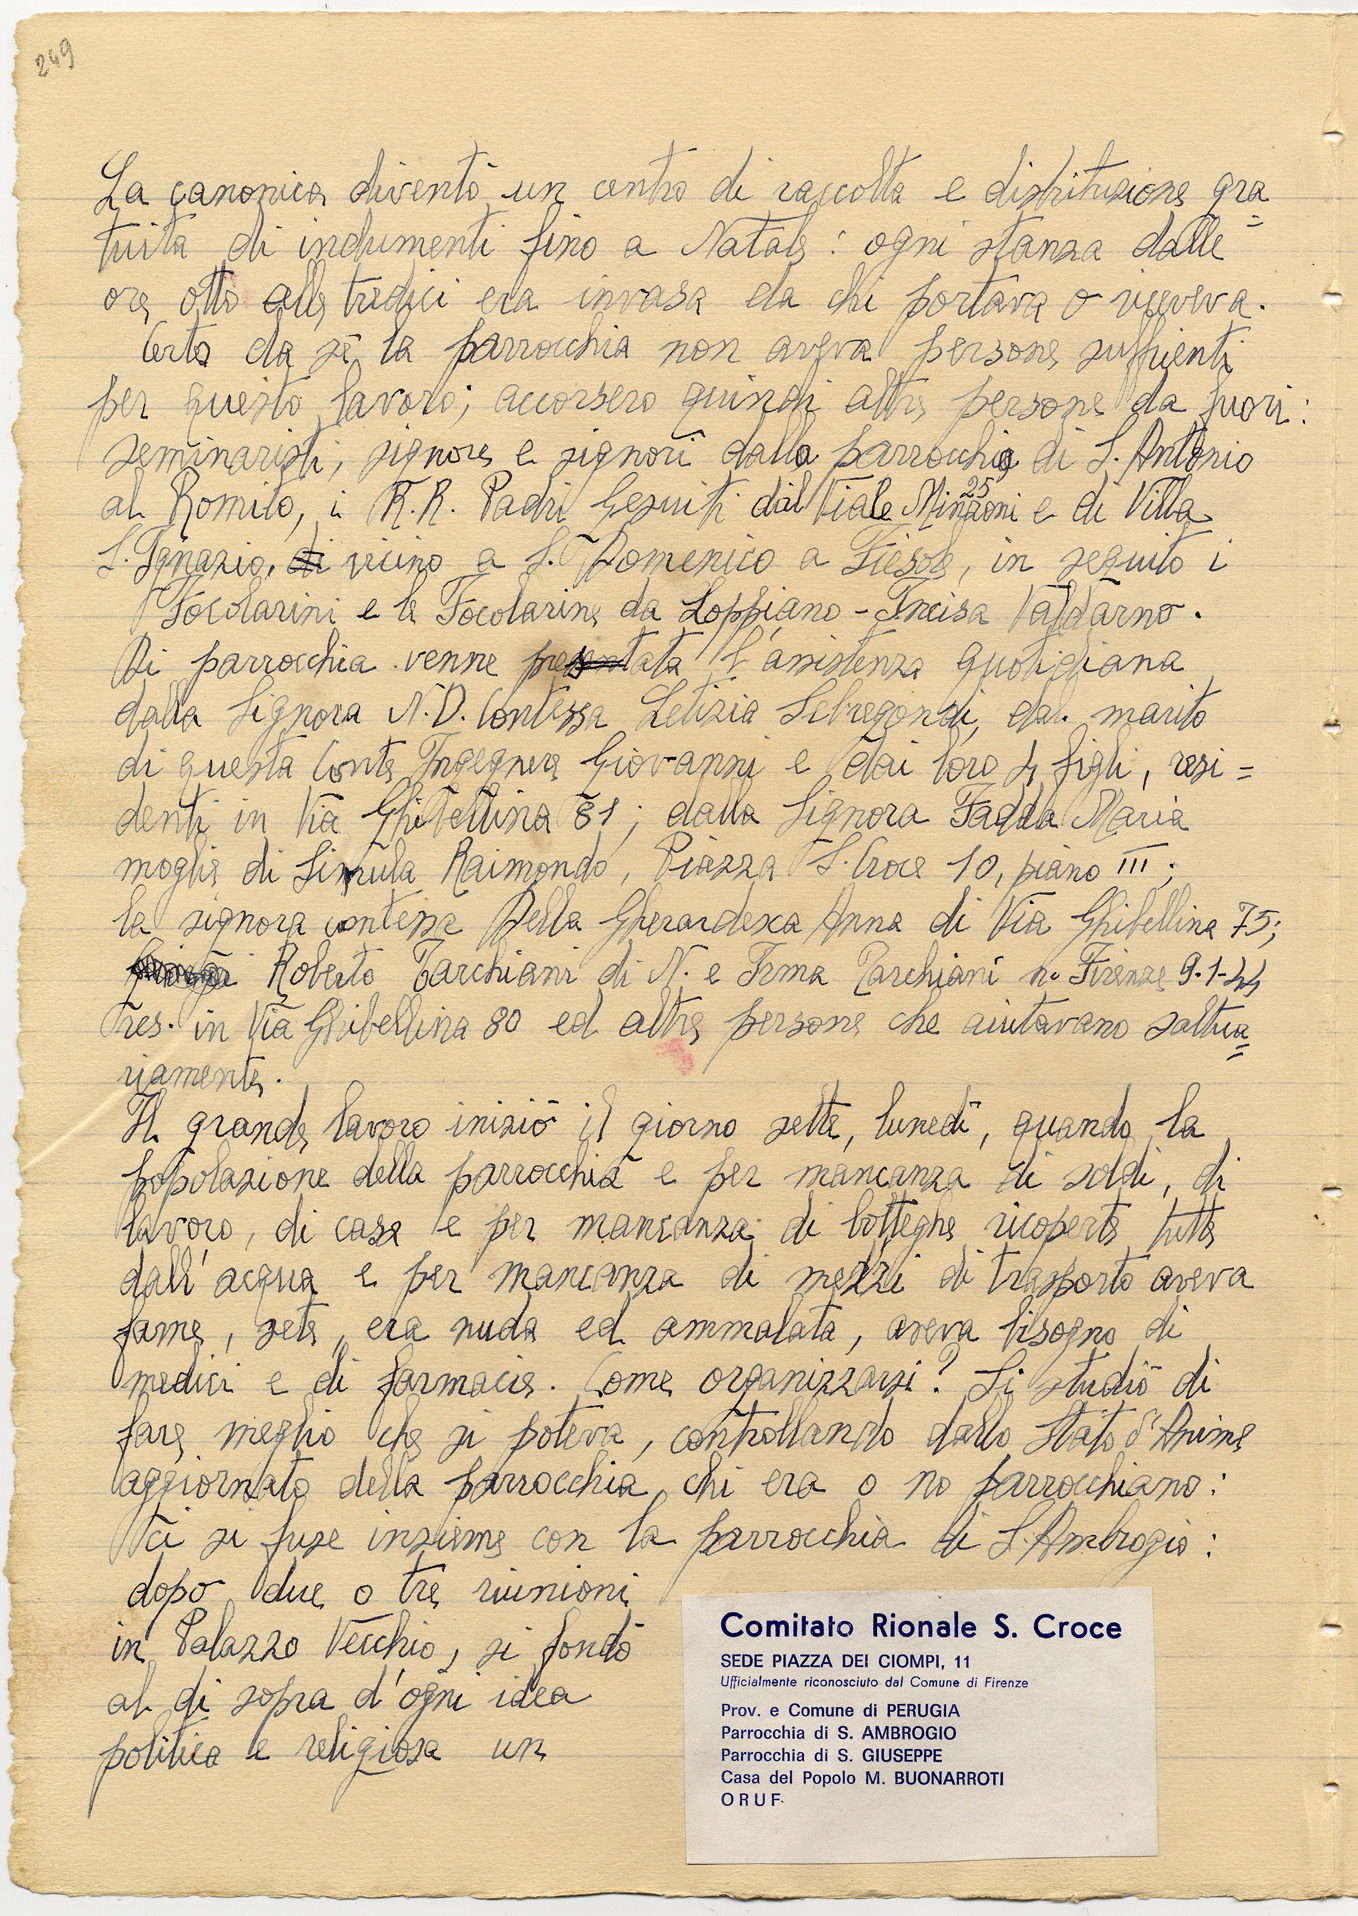 249
La canonica diventò un centro di raccolta e distribuzione gra=
tuita di indumenti fino a Natale: ogni stanza dalle
ore otto alle tredici era invasa da chi portava o riceveva.
Certo da sè la parrocchia non aveva persone sufficienti
per questo lavoro; accorsero quindi altre persone da fuori:
seminaristi, signore e signori dalla parrocchia di S. Antonio
al Romito, i R.R. Padri Gesuiti dal Viale Minzoni 25 e di Villa
S. Ignazio, di vicino a S. Domenico a Fiesole, in seguito i
Focolarini e le Focolarine da Loppiano - Incisa Valdarno.
Di parrocchia venne prestata l'assistenza quotidiana
dalla Signora N.D. Contessa Letizia Sebregondi, dal marito
di questa Conte Ingegnere Giovanni e dai loro 4 figli, resi=
denti in Via Ghibellina 81; dalla Signora Fadda Maria
moglie di Sinzula Raimondo, Piazza S. Croce 10, piano III;
la signora contessa Della Gherardesca Anna di Via Ghibellina 75;
Roberto Tarchiani di N. e Irma Tarchiani n. Firenze 9-1-44
res. in Via Ghibellina 80 ed altre persone che aiutavano saltua=
riamente.
Il grande lavoro iniziò il giorno sette, lunedì, quando la
popolazione della parrocchia e per mancanza di soldi, di
lavoro, di casa e per mancanza di botteghe ricoperte tutte
dall'acqua e per mancanza di mezzi di trasporto aveva
fame, sete, era nuda ed ammalata, aveva bisogno di
medici e di farmacie. Come organizzarsi? Si studiò di
fare meglio che si poteva, controllando dallo Stato d'Anime
aggiornato della parrocchia chi era o no parrocchiano:
ci si fuse insieme con la parrocchia di S. Ambrogio:
dopo due o tre riunioni
in Palazzo Vecchio, si fondò
al di sopra d'ogni idea
politica e religiosa un
Comitato Rionale S. Croce
SEDE PIAZZA DEI CIOMPI, 11
Ufficialmente riconosciuto dal Comune di Firenze
Prov. e Comune di PERUGIA
Parrocchia di S. AMBROGIO
Parrocchia di S. GIUSEPPE
Casa del Popolo M. BUONARROTI
ORUF